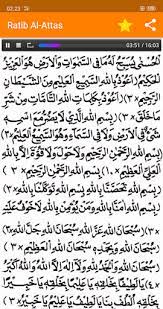 02.23
Ratib Al-Attas
03:51 / 16:03
الْحُسْنَى يُسَبِّحُ لَهُ مَا فِي السَّمٰوَاتِ وَالْأَرْضِ وَهُوَ الْعَزِيزُ
الْحَكِيمُ أَعُوذُ بِاللهِ السَّمِيعِ الْعَلِيمِ مِنَ الشَّيْطَانِ
الرَّجِيمِ ×٣) أَعُوذُ بِكَلِمَاتِ اللهِ التَّامَّاتِ مِنْ شَرِّ
مَا خَلَقَ ×٣) بِسْمِ اللهِ الَّذِي لَا يَضُرُّ مَعَ اسْمِهِ
شَيْءٌ فِي الْأَرْضِ وَلَا فِي السَّمَاءِ وَهُوَ السَّمِيعُ الْعَلِيمُ ×٣)
بِسْمِ اللهِ الرَّحْمٰنِ الرَّحِيمِ وَلَا حَوْلَ وَلَا قُوَّةَ إِلَّا بِاللهِ
الْعَلِيِّ الْعَظِيمِ ×١٠) بِسْمِ اللهِ الرَّحْمٰنِ الرَّحِيمِ ×٣)
بِسْمِ اللهِ
بِسْمِ اللهِ آمَنَّا بِاللهِ وَمَنْ يُؤْمِنْ بِاللهِ لَا خَوْفٌ عَلَيْهِ ×٣)
سُبْحَانَ اللهِ
سُبْحَانَ اللهِ وَبِحَمْدِهِ سُبْحَانَ اللهِ الْعَظِيمِ ×٣)
سُبْحَانَ اللهِ وَالْحَمْدُ لِلهِ وَلَا إِلٰهَ إِلَّا اللهُ وَاللهُ أَكْبَرُ
يَا لَطِيفًا بِخَلْقِهِ يَا عَلِيمًا بِخَلْقِهِ يَا خَبِيرًا
بِخَلْقِهِ الْطُفْ بِنَا يَا لَطِيفُ يَا عَلِيمُ يَا خَبِيرُ ×٣)